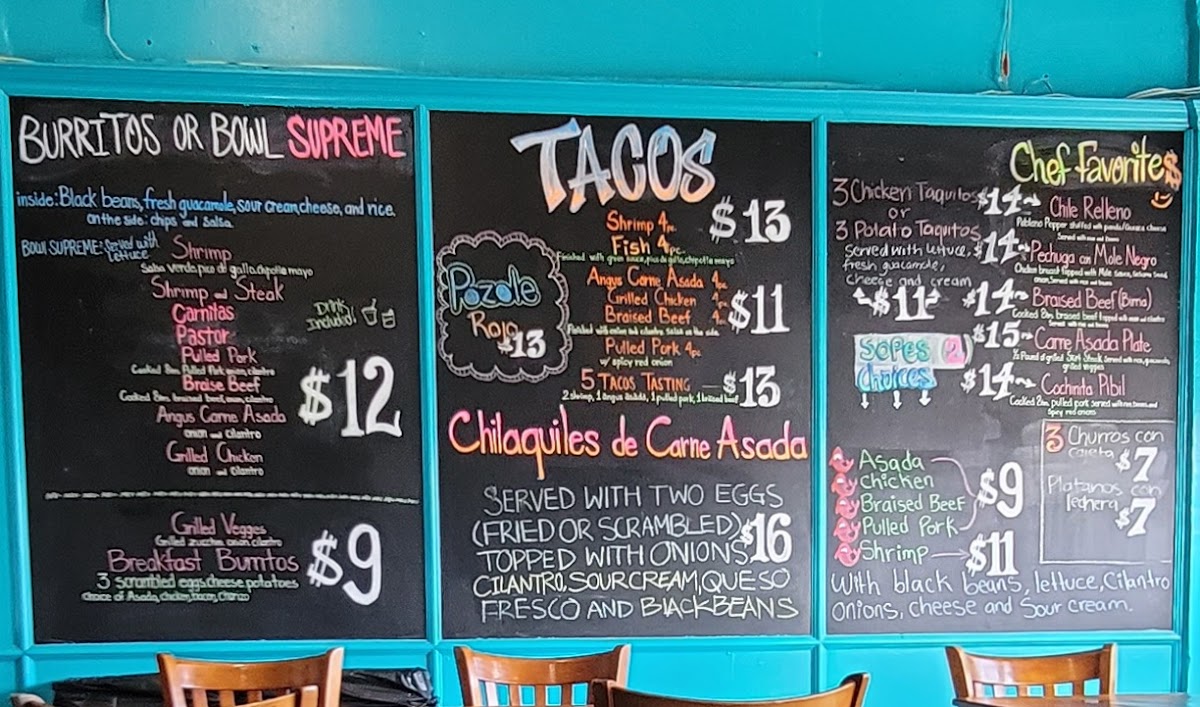 BURRITOS OR BOWL SUPREME
inside: Black beans, fresh guacamole, sour cream, cheese, and rice.
on the side: chips and salsa
BOWL SUPREME: Served with
lettuce
Shrimp
Salsa verde, pico de gallo, chipotle mayo
Shrimp and Steak
Carnitas
Pastor
Drink
Included!
Pulled Pork
Cooked 8hrs. Pulled Pork, onion, cilantro
Braise Beef
Cooked 8hrs. braised beef, onion, cilantro
$12
Angus Carne Asada
onion and cilantro
Grilled Chicken
onion and cilantro
Grilled Veggies
Grilled zucchini, onion, cilantro
Breakfast Burritos
$9
3 scrambled eggs, cheese, potatoes
choice of Asada, chicken, bacon,
TACOS
Shrimp 4pc.
$13
Fish 4pc.
Finished with green sauce, pico de gallo, chipotle mayo
Pozole
Rojo
$13
Angus Carne Asada 4pc
Grilled Chicken 4pc
Braised Beef 4pc
$11
Finished with onion and cilantro. Salsa on the side.
Pulled Pork 4pc
w/ spicy red onion
5 TACOS TASTING — $13
2 shrimp, 1 angus asada, 1 pulled pork, 1 braised beef
Chilaquiles de Carne Asada
SERVED WITH TWO EGGS
(FRIED OR SCRAMBLED)
TOPPED WITH ONIONS
$16
CILANTRO, SOUR CREAM, QUESO
FRESCO AND BLACK BEANS
Chef Favorite$
3 Chicken Taquitos
or
3 Potato Taquitos
Served with letuce,
fresh guacamole,
cheese and cream
$11
$14 Chile Relleno
Poblano Pepper stuffed with cheese
Served with rice and beans
$14 Pechuga con Mole Negro
Chicken breast topped with Mole sauce, Sesame Seed,
onion. Served with rice and beans
$14 Braised Beef (Birria)
Cooked 8hrs. braised beef topped with onion and cilantro
Served with rice and beans
$15 Carne Asada Plate
½ Pound of grilled Steak Served with rice, guacamole,
grilled veggies
$14 Cochinita Pibil
Cooked 8hrs. pulled pork served with rice, beans and
spicy red onions
Sopes 2
Choices
Asada
Chicken
Braised Beef
Pulled Pork
$9
Shrimp
$11
With black beans, lettuce, Cilantro
onions, cheese and Sour cream.
3 Churros con
Cajeta
$7
Platanos con
lechera
$7